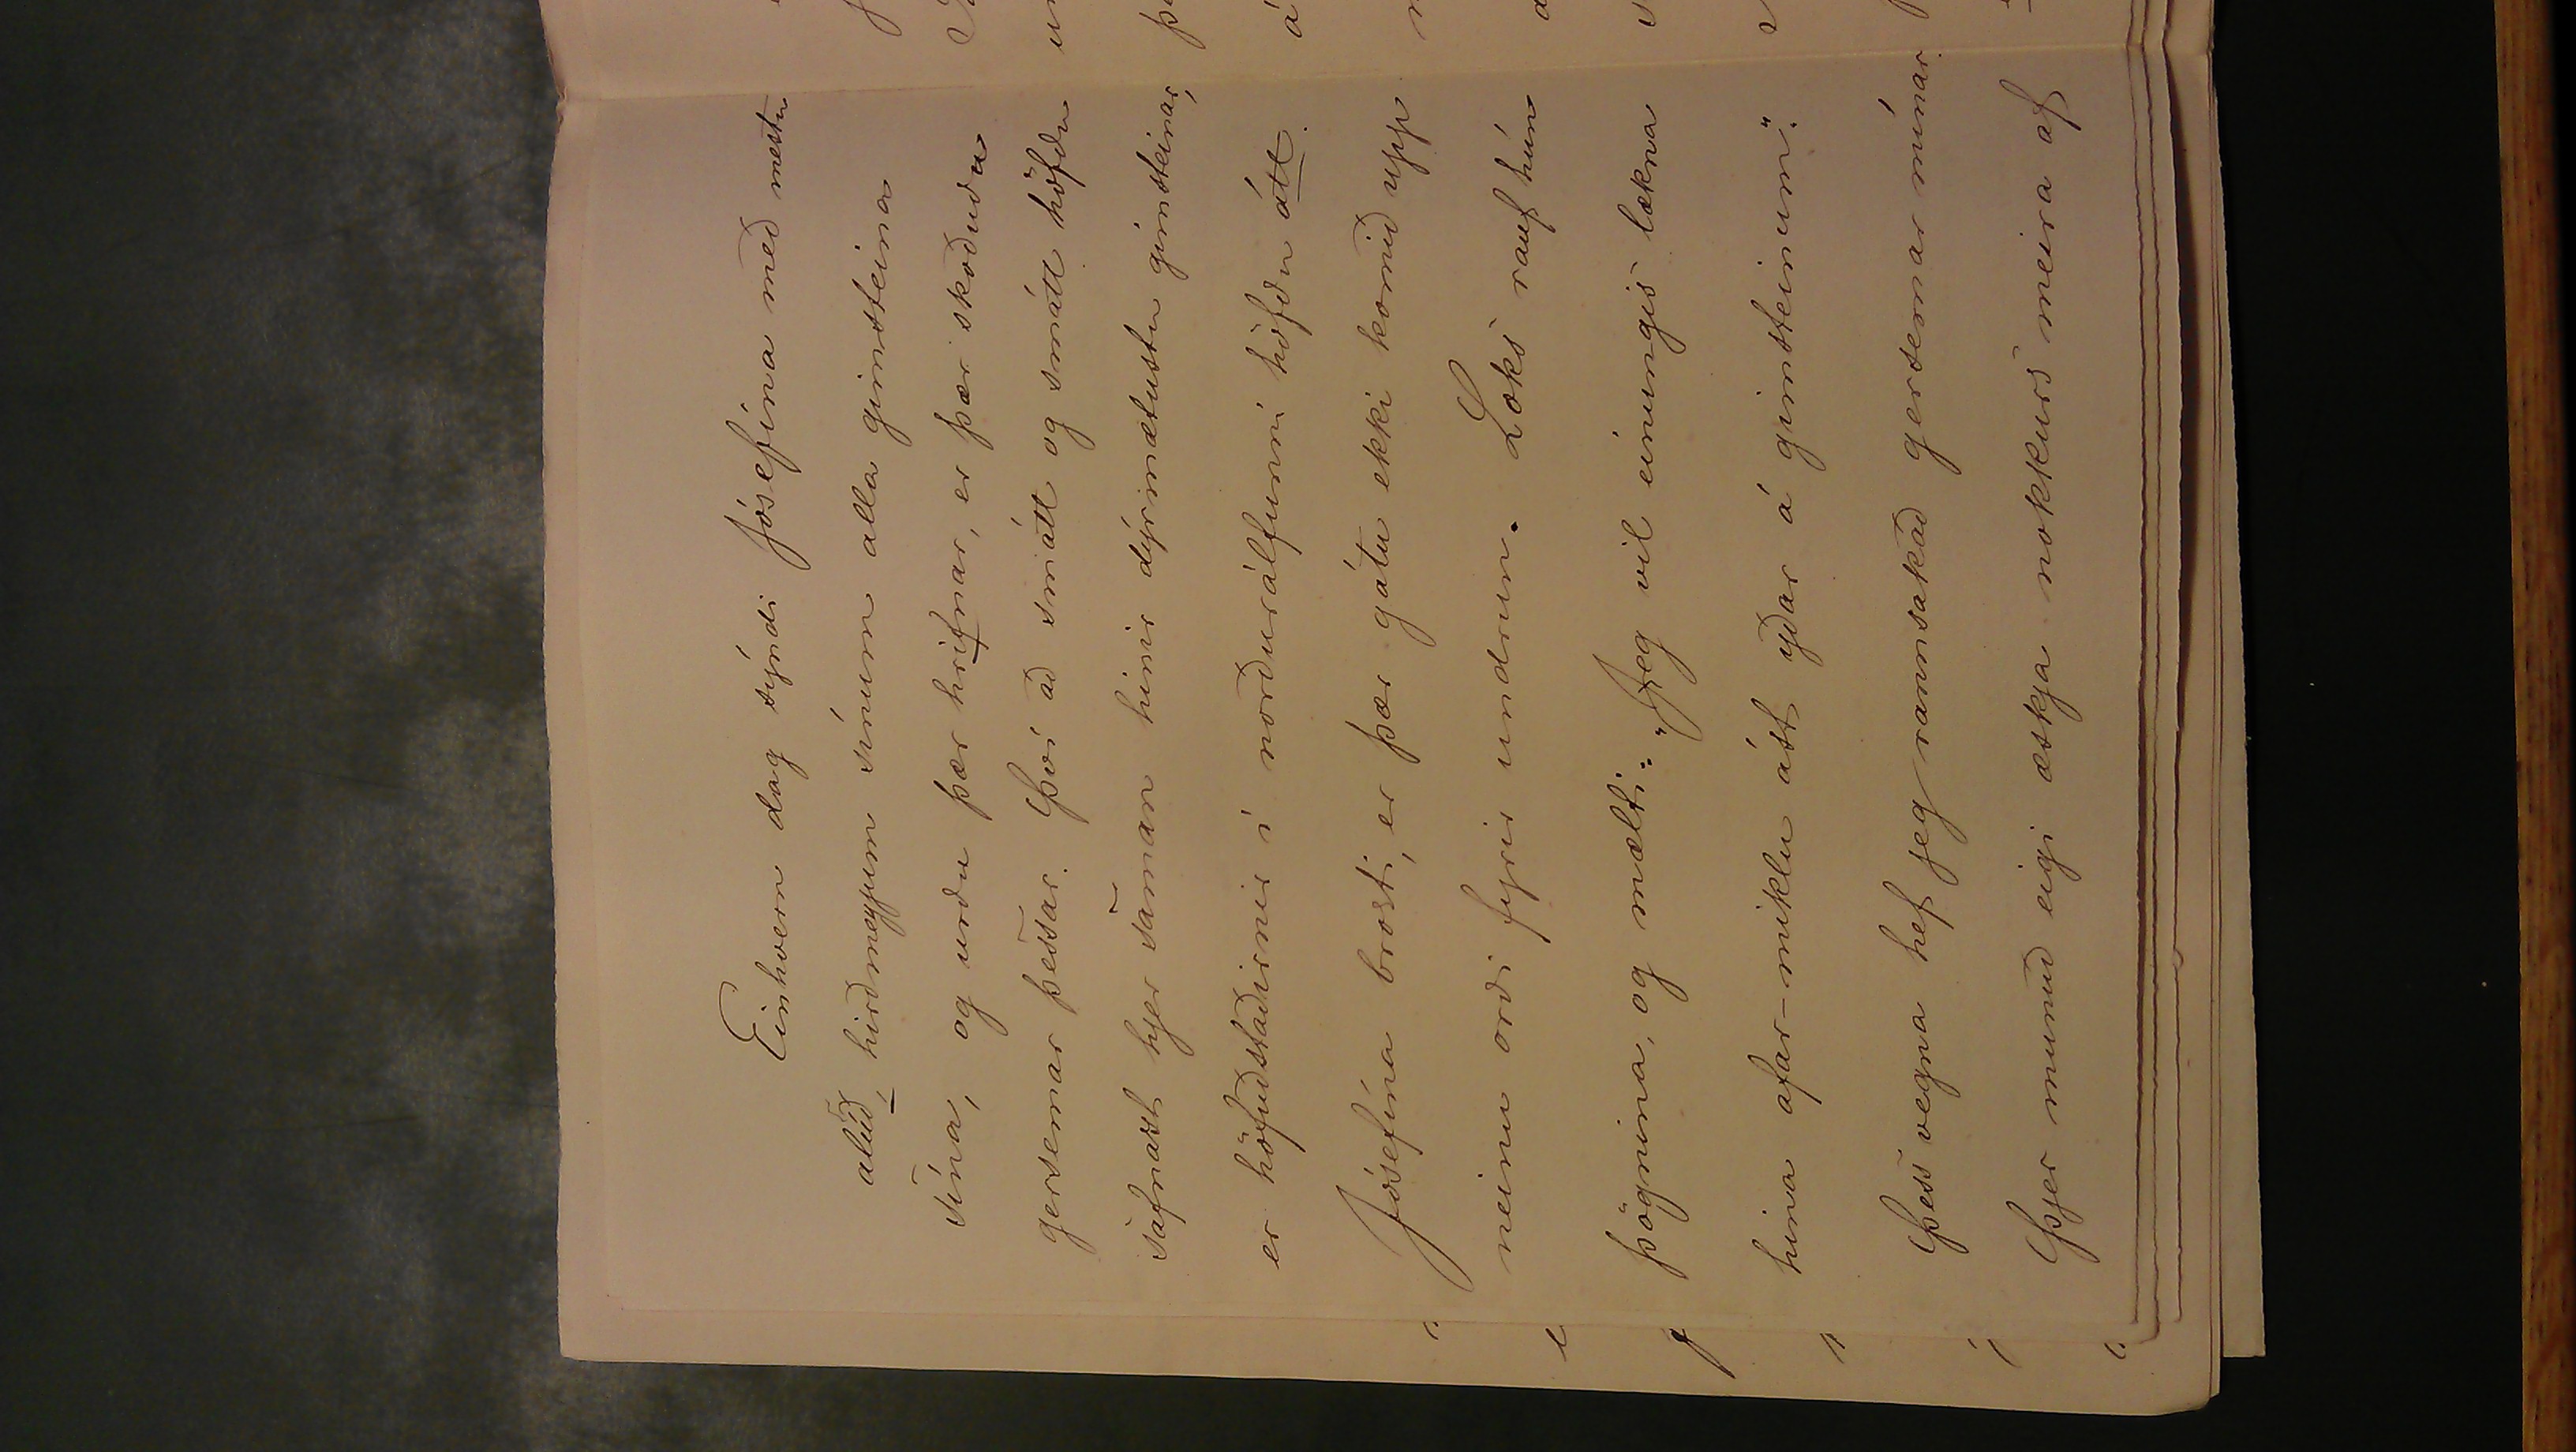 Einhvern dag sýndi Jósefína með mestu
alúð, hirðmeyjum sínum alla gimsteina
sína, og urðu þær hrifnar, er þær skoðuðu
gersemar þessar. Því að smátt og smátt höfðu
safnast hjer saman hinir dýrmætustu gimsteinar,
er höfuðstaðirnir í norðurálfunni höfðu átt.
Jósefína brosti, er þær gátu ekki komið upp
neinu orði fyrir undrun. Loks rauf hún
þögnina, og mælti: "Jeg vil einungis lækna
hina afar-miklu ást yðar á gimsteinum".
Þess vegna hef jeg rannsakað gersemar mínar.
Þjer munuð eigi æskja nokkurs meira af